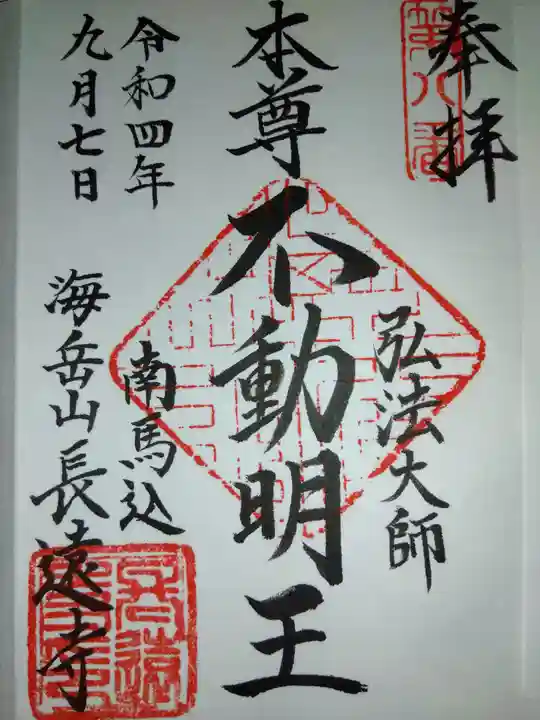 奉拝
第八番
弘法大師
本尊不動明王
令和四年
九月七日
南馬込
海岳山長遠寺